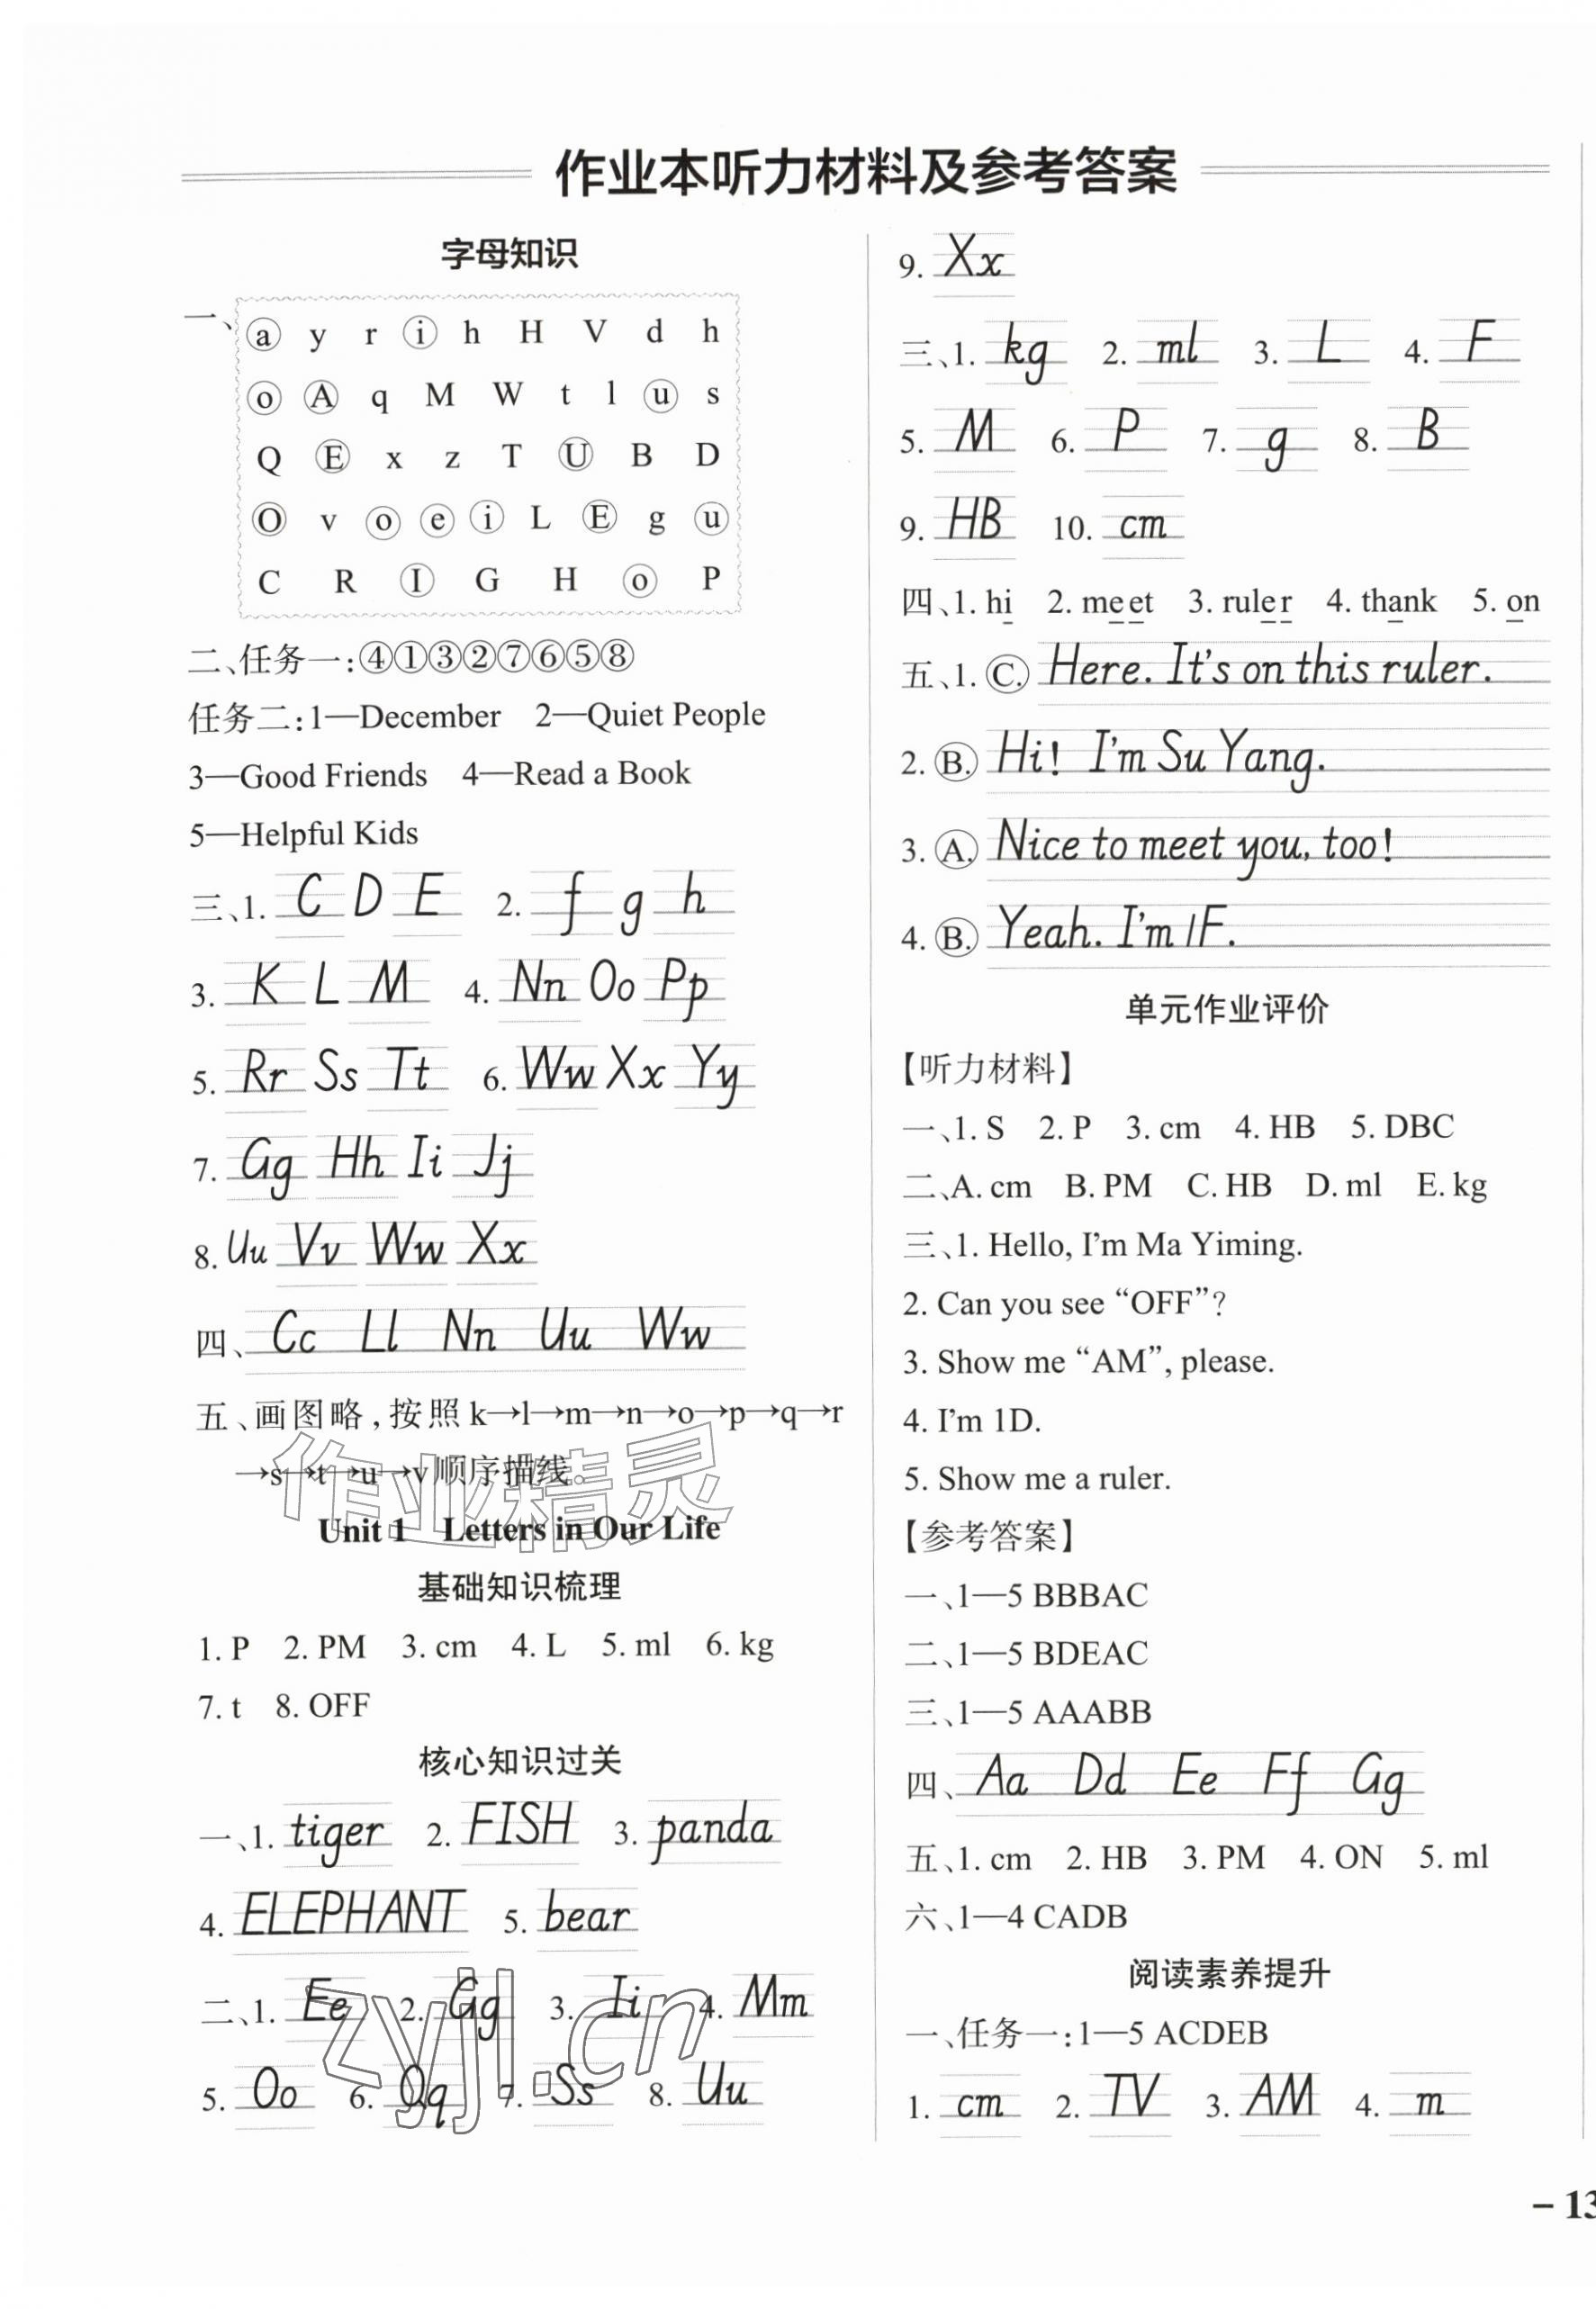 作业本听力材料及参考答案
字母知识
一、 a y r i h H V d h
o A q M W t l u s
Q E x z T U B D
O v o e i L E g u
C R I G H o P
二、任务一:④①③②⑦⑥⑤⑧
任务二:1—December 2—Quiet People
3—Good Friends 4—Read a Book
5—Helpful Kids
三、1. C D E 2. f g h
3. K L M 4. Nn Oo Pp
5. Rr Ss Tt 6. Ww Xx Yy
7. Gg Hh Ii Jj
8. Uu Vv Ww Xx
四、 Cc Ll Nn Uu Ww
五、画图略,按照k→l→m→n→o→p→q→r
→s→t→u→v顺序描线。
Unit 1 Letters in Our Life
基础知识梳理
1. P 2. PM 3. cm 4. L 5. ml 6. kg
7. t 8. OFF
核心知识过关
一、1. tiger 2. FISH 3. panda
4. ELEPHANT 5. bear
二、1. Ee 2. Gg 3. Ii 4. Mm
5. Oo 6. Qq 7. Ss 8. Uu
9. Xx
三、1. kg 2. ml 3. L 4. F
5. M 6. P 7. g 8. B
9. HB 10. cm
四、1. hi 2. meet 3. ruler 4. thank 5. on
五、1. C. Here. It's on this ruler.
2. B. Hi! I'm Su Yang.
3. A. Nice to meet you, too!
4. B. Yeah. I'm 1F.
单元作业评价
【听力材料】
一、1. S 2. P 3. cm 4. HB 5. DBC
二、A. cm B. PM C. HB D. ml E. kg
三、1. Hello, I'm Ma Yiming.
2. Can you see “OFF”?
3. Show me “AM”, please.
4. I'm 1D.
5. Show me a ruler.
【参考答案】
一、1—5 BBBAC
二、1—5 BDEAC
三、1—5 AAABB
四、 Aa Dd Ee Ff Gg
五、1. cm 2. HB 3. PM 4. ON 5. ml
六、1—4 CADB
阅读素养提升
一、任务一:1—5 ACDEB
1. cm 2. TV 3. AM 4. m
－13
作业精灵
zyjl.cn